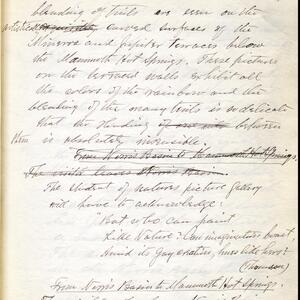 blending of tints are seen on the
artistically curved surfaces of the
Minerva and Jupiter terraces below
the Mammoth Hot Springs. These pictures
on the terraced walls exhibit all
the colors of the rainbow and the
blending of the many tints is so delicate
that the shading of one into between
them is absolutely invisible.
From Norris Basin to Mammoth Hot Springs.
The visitor leaves Norris Basin
The student of natures picture gallery
will have to acknowledge:
"But who can paint
Like Nature? Can imagination boast
Amid its gay creation, hues like hers?
(Thomson)
From Norris Basin to Mammoth Hot Springs.